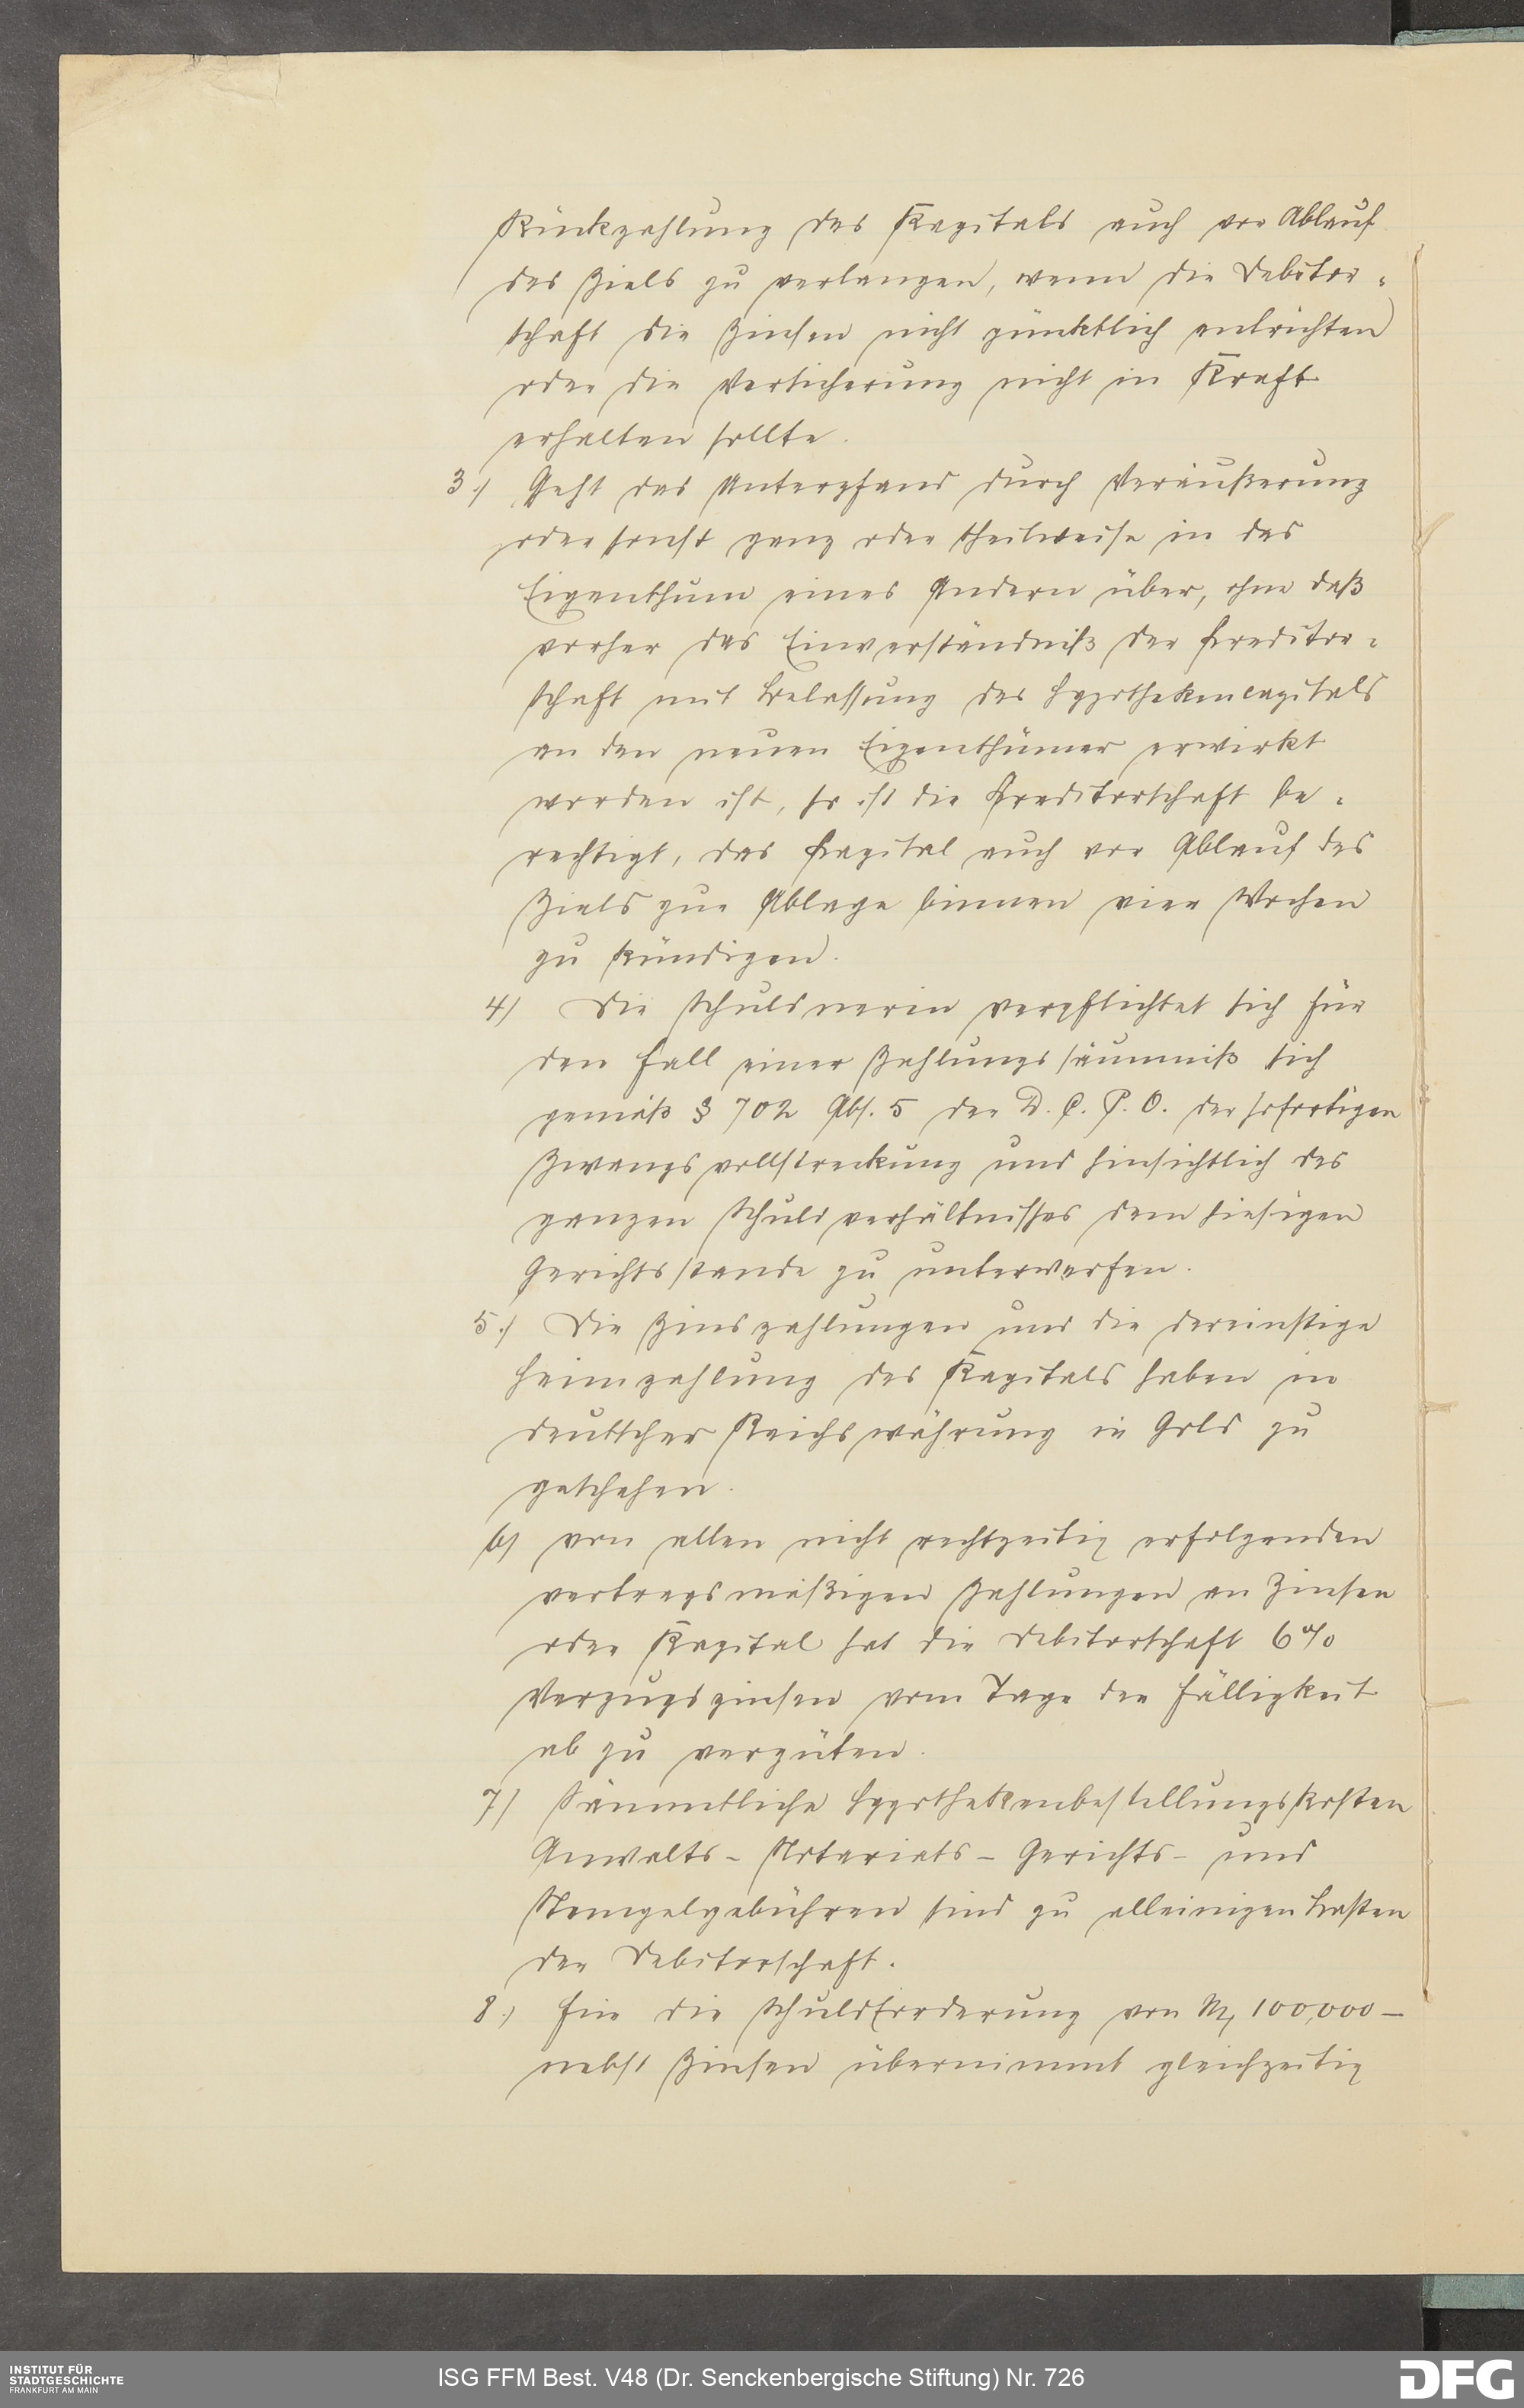 Rückzahlung des Kapitals auch vor Ablauf
des Ziels zu verlangen, wenn die Debitor-
schaft die Zinsen nicht pünktlich entrichten
oder die Versicherung nicht in Kraft
erhalten sollte.
3.) Geht das Unterpfand durch Veräußerung
oder sonst ganz oder theilweise in das
Eigenthum eines Andern über, ohne daß
vorher das Einverständniß der Creditor-
schaft mit Belassung des Hypothekencapitals
an den neuen Eigenthümer erwirkt
worden ist, so ist die Creditorschaft be-
rechtigt, das Capital auch vor Ablauf des
Ziels zur Ablage binnen vier Wochen
zu kündigen.
4) Die Schuldnerin verpflichtet sich für
den Fall einer Zahlungssäumniß sich
gemäß § 702 Abs. 5 der D. C. P. O. der sofortigen
Zwangsvollstreckung und hinsichtlich des
ganzen Schuldverhältnisses dem hiesigen
Gerichtsstande zu unterwerfen.
5.) Die Zinszahlungen und die dereinstige
Heimzahlung des Kapitals haben in
deutscher Reichswährung in Gold zu
geschehen.
6) von allen nicht rechtzeitig erfolgenden
vertragsmäßigen Zahlungen an Zinsen
oder Kapital hat die Debitorschaft 6%
Verzugszinsen vom Tage der Fälligkeit
ab zu vergüten.
7) Sämmtliche Hypothekenbestellungskosten
Anwalts- Notariats- Gerichts- und
Stempelgebühren sind zu alleinigen Lasten
der Debitorschaft.
8.) Für die Schuldforderung von M. 100,000 —
nebst Zinsen übernimmt gleichzeitig
INSTITUT FÜR
STADTGESCHICHTE
FRANKFURT AM MAIN
ISG FFM Best. V48 (Dr. Senckenbergische Stiftung) Nr. 726
DFG